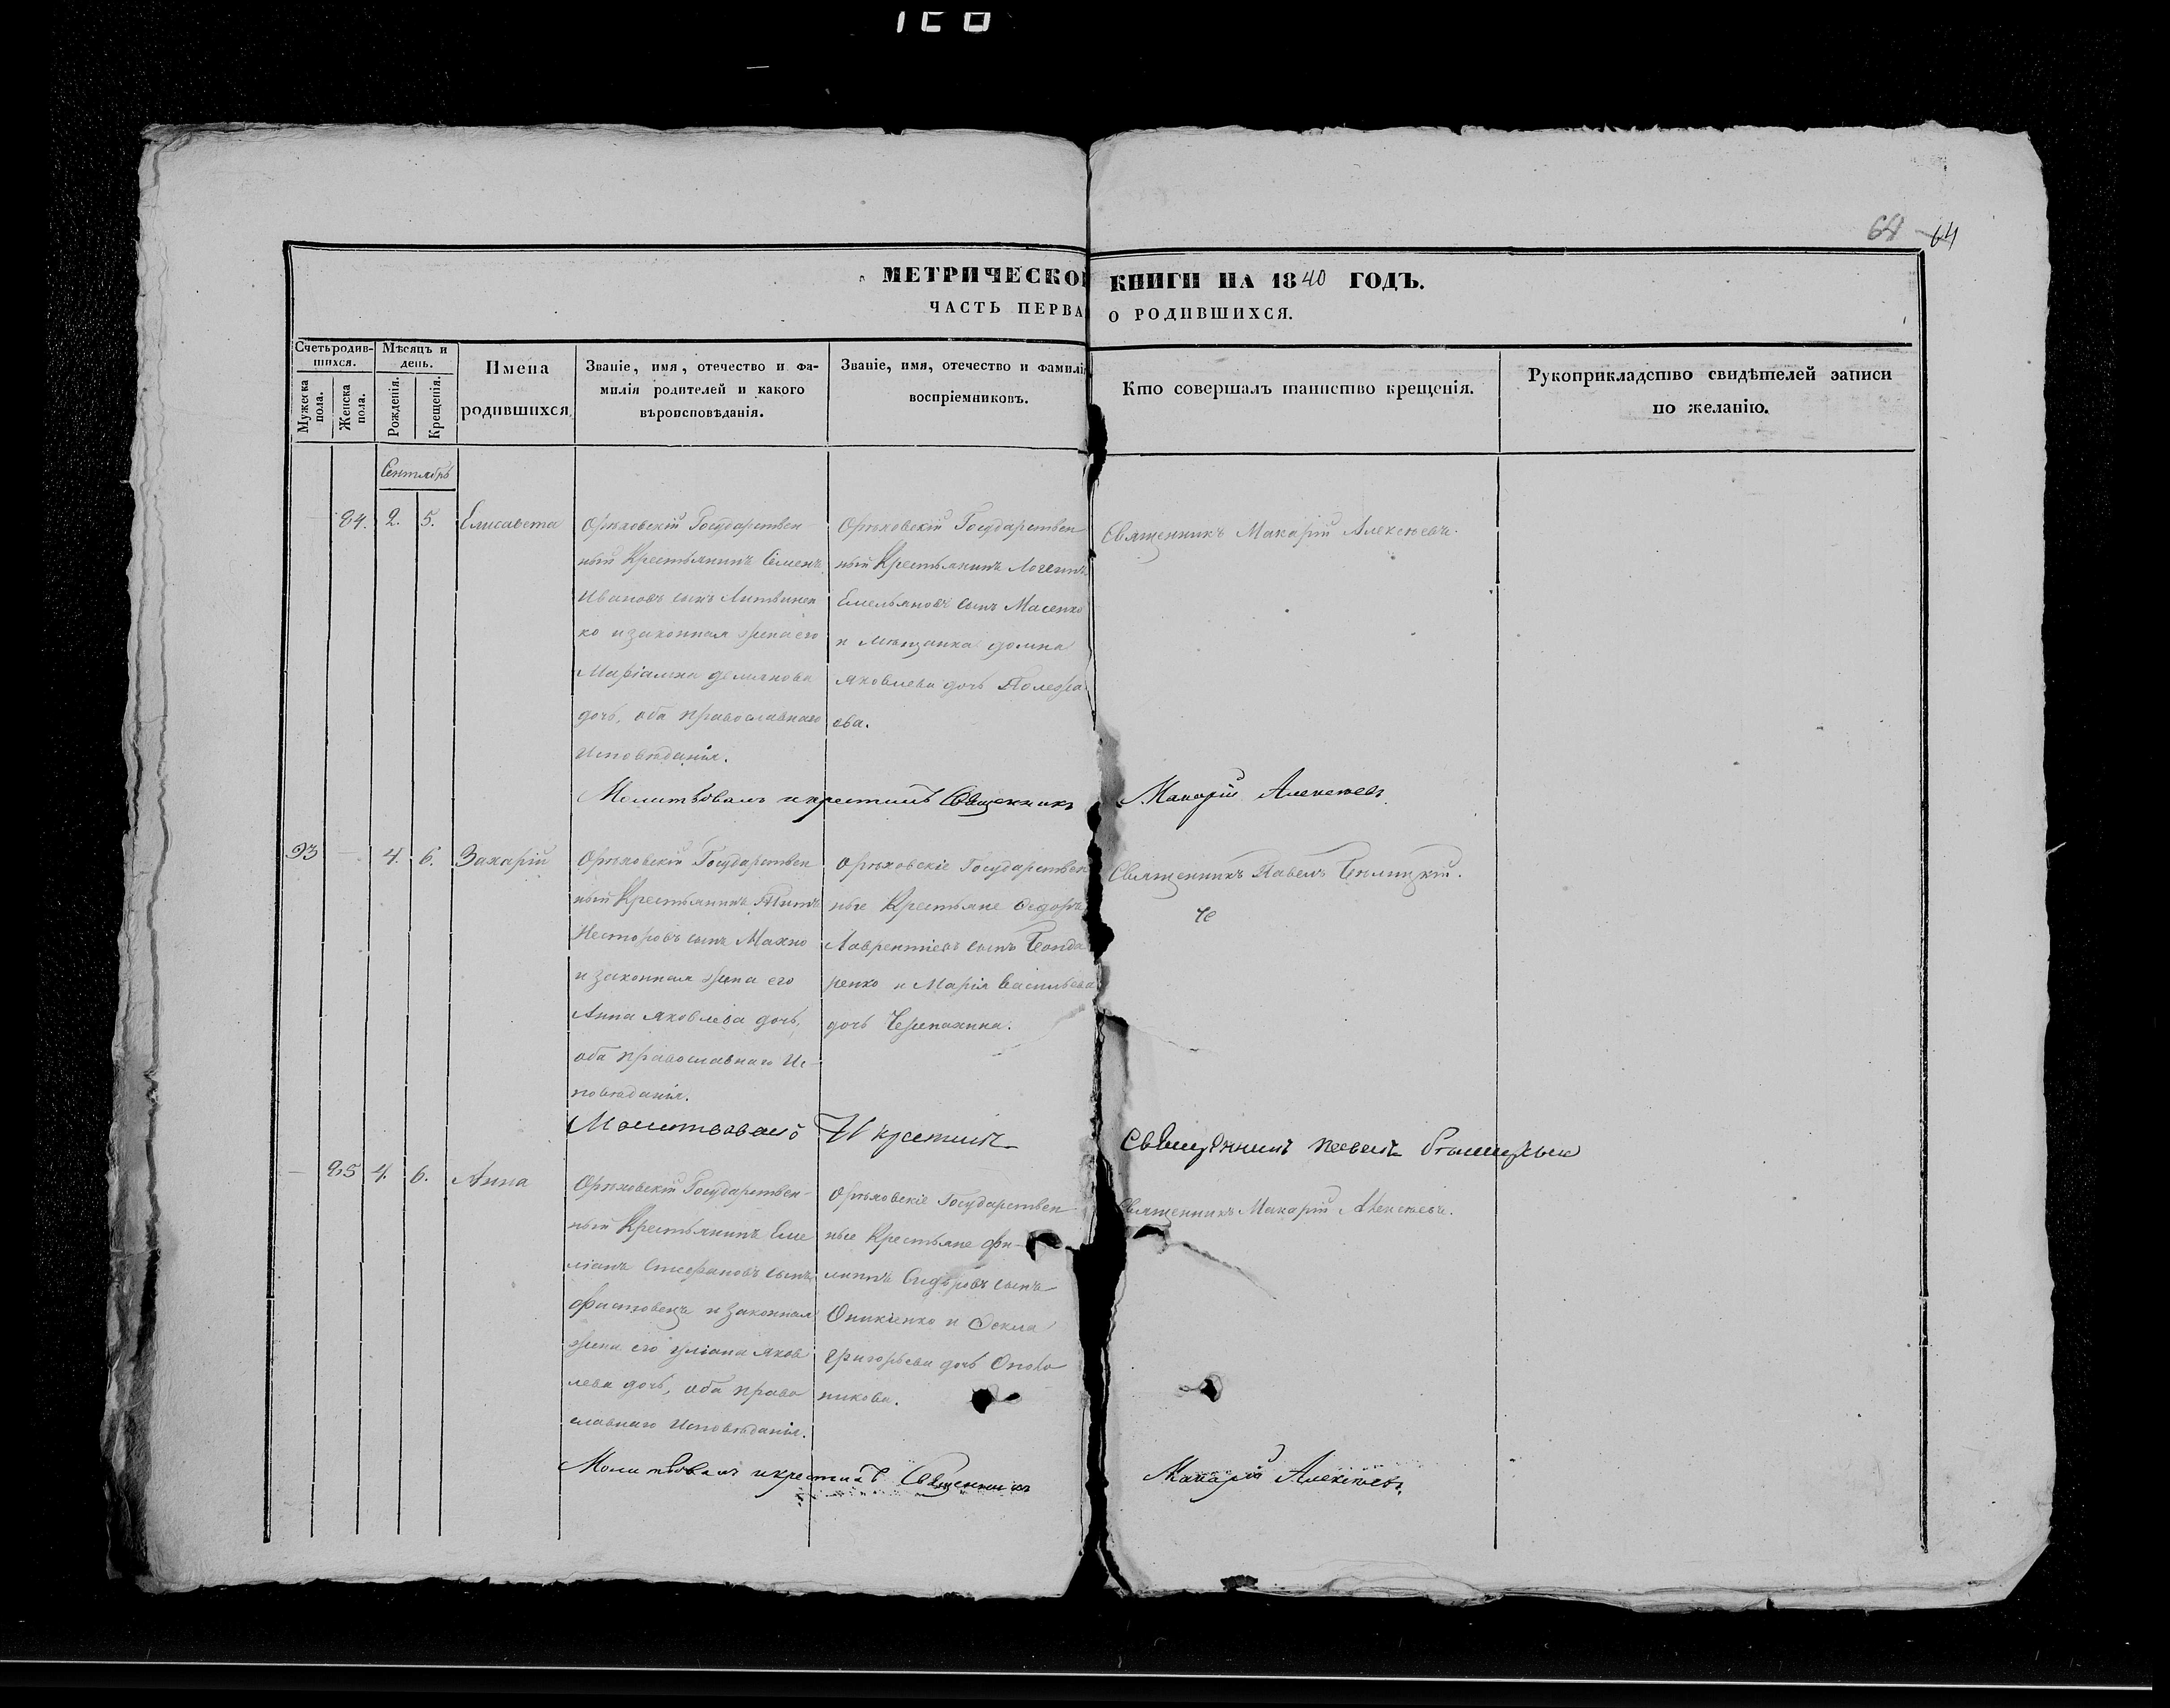 64 64
МЕТРИЧЕСКО КНИГИ НА 1840 ГОДЪ.
ЧАСТЬ ПЕРВА О РОДИВШИХСЯ.
Счетъ родившихся.
Мужеска пола.
Женска пола.
Мѣсяцъ и день.
Рожденія.
Крещенія.
Имена родившихся
Званіе, имя, отечество и фамилія родителей и какого вѣроисповѣданія.
Званіе, имя, отечество и фамилі воспріемниковъ.
Кто совершалъ таинство крещенія.
Рукоприкладство свидѣтелей записи по желанію.
Сентябрь
84. 2. 5. Елисавета
Орѣховскій Государствен
ный Крестьянинъ Семенъ
Ивановъ сынъ Литвинен
ко и законная жена его
Маріамна Демьянова
дочь, оба православнаго
Исповѣданія.
Орѣховскій Государствен
ный Крестьянинъ Логгинъ
Емельяновъ сынъ Масенко
и мѣщанка Домна
Яковлева дочь
ова.
Священникъ Макарій Алексѣевъ.
Молитвовалъ и крестилъ Священникъ Макарій Алексѣевъ
93 — 4. 6. Захарій
Орѣховскій Государствен
ный Крестьянинъ Титъ
Несторовъ сынъ Махно
и законная жена его
Анна Яковлева дочь,
оба православнаго Ис-
повѣданія.
Орѣховскіе Государствен
ные Крестьяне Ѳедоръ
Лаврентіевъ сынъ Бонда
ренко и Марія Васильева
дочь Черепахина.
Священникъ Павелъ Бѣлицкій.
Молитвовалъ И крестилъ Священникъ Павелъ Бѣлицкій
— 85 4. 6. Анна
Орѣховскій Государствен-
ный Крестьянинъ Еме
ліанъ Стефановъ сынъ
Фастовецъ и законная
жена его Уліана Яков
лева дочь, оба право
славнаго Исповѣданія.
Орѣховскіе Государствен
ные Крестьяне Фи-
липпъ Сидоровъ сынъ
Оникіенко и Ѳекла
Григорьева дочь
никова.
Священникъ Макарій Алексѣевъ.
Молитвовалъ и крестилъ Священникъ Макарій Алексѣевъ